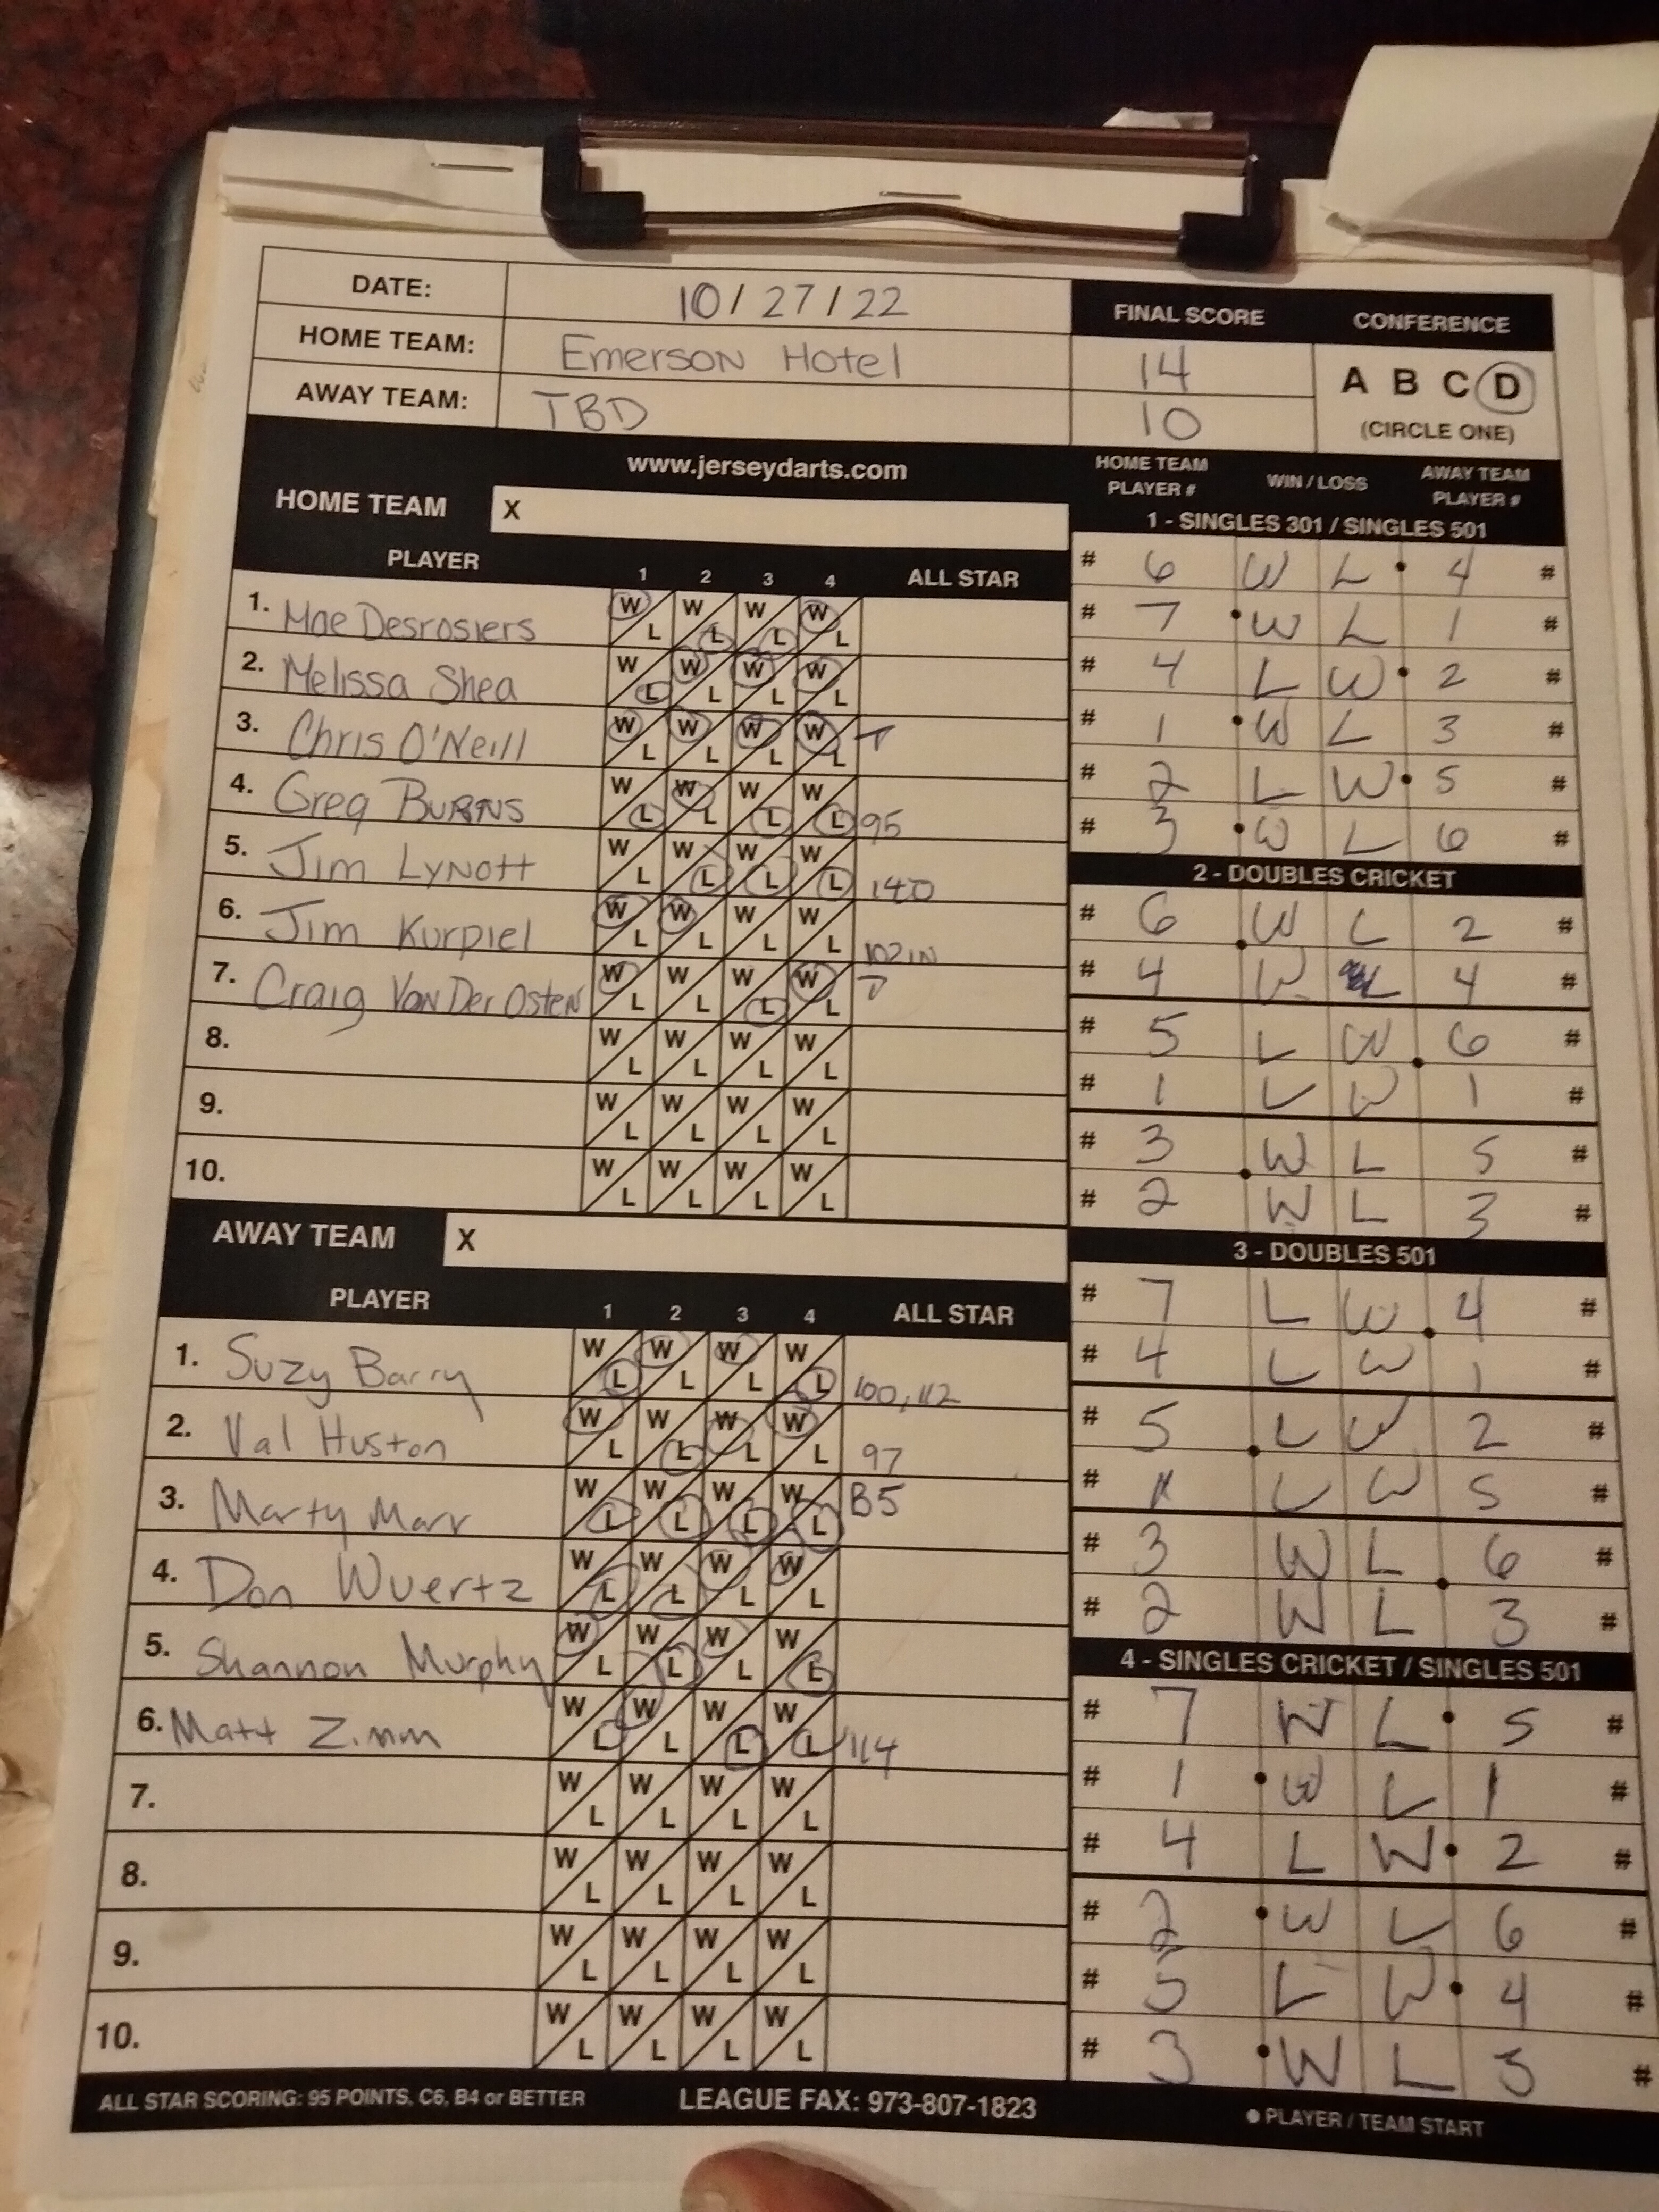 DATE: 10/27/22
FINAL SCORE CONFERENCE
HOME TEAM: Emerson Hotel 14
A B C D
AWAY TEAM: TBD 10
(CIRCLE ONE)
www.jerseydarts.com
HOME TEAM PLAYER # WIN / LOSS AWAY TEAM PLAYER #
HOME TEAM X
1 - SINGLES 301 / SINGLES 501
PLAYER 1 2 3 4 ALL STAR
1. Mae Desrosiers W L W L W L W L
2. Melissa Shea W L W L W L W L
3. Chris O'Neill W L W L W L W L T
4. Greg Burns W L W L W L W L 95
5. Jim Lynott W L W L W L W L 140
6. Jim Kurpiel W L W L W L W L 102 IN
7. Craig Van Der Osten W L W L W L W L
8. W L W L W L W L
9. W L W L W L W L
10. W L W L W L W L
AWAY TEAM X
PLAYER 1 2 3 4 ALL STAR
1. Suzy Barry W L W L W L W L 100, 112
2. Val Huston W L W L W L W L 97
3. Marty Marr W L W L W L W L B5
4. Don Wuertz W L W L W L W L
5. Shannon Murphy W L W L W L W L
6. Matt Zimm W L W L W L W L 114
7. W L W L W L W L
8. W L W L W L W L
9. W L W L W L W L
10. W L W L W L W L
# 6 W L • 4 #
# 7 • W L 1 #
# 4 L W • 2 #
# 1 • W L 3 #
# 2 L W • 5 #
# 3 • W L 6 #
2 - DOUBLES CRICKET
# 6 W L 2 #
# 4 W L 4 #
# 5 L W 6 #
# 1 L W 1 #
# 3 W L 5 #
# 2 W L 3 #
3 - DOUBLES 501
# 7 L W 4 #
# 4 L W 1 #
# 5 L W 2 #
# 1 L W 5 #
# 3 W L 6 #
# 2 W L 3 #
4 - SINGLES CRICKET / SINGLES 501
# 7 W L • 5 #
# 1 • W L 1 #
# 4 L W • 2 #
# 2 • W L 6 #
# 5 L W • 4 #
# 3 • W L 3 #
ALL STAR SCORING: 95 POINTS, C6, B4 or BETTER LEAGUE FAX: 973-807-1823 ● PLAYER / TEAM START